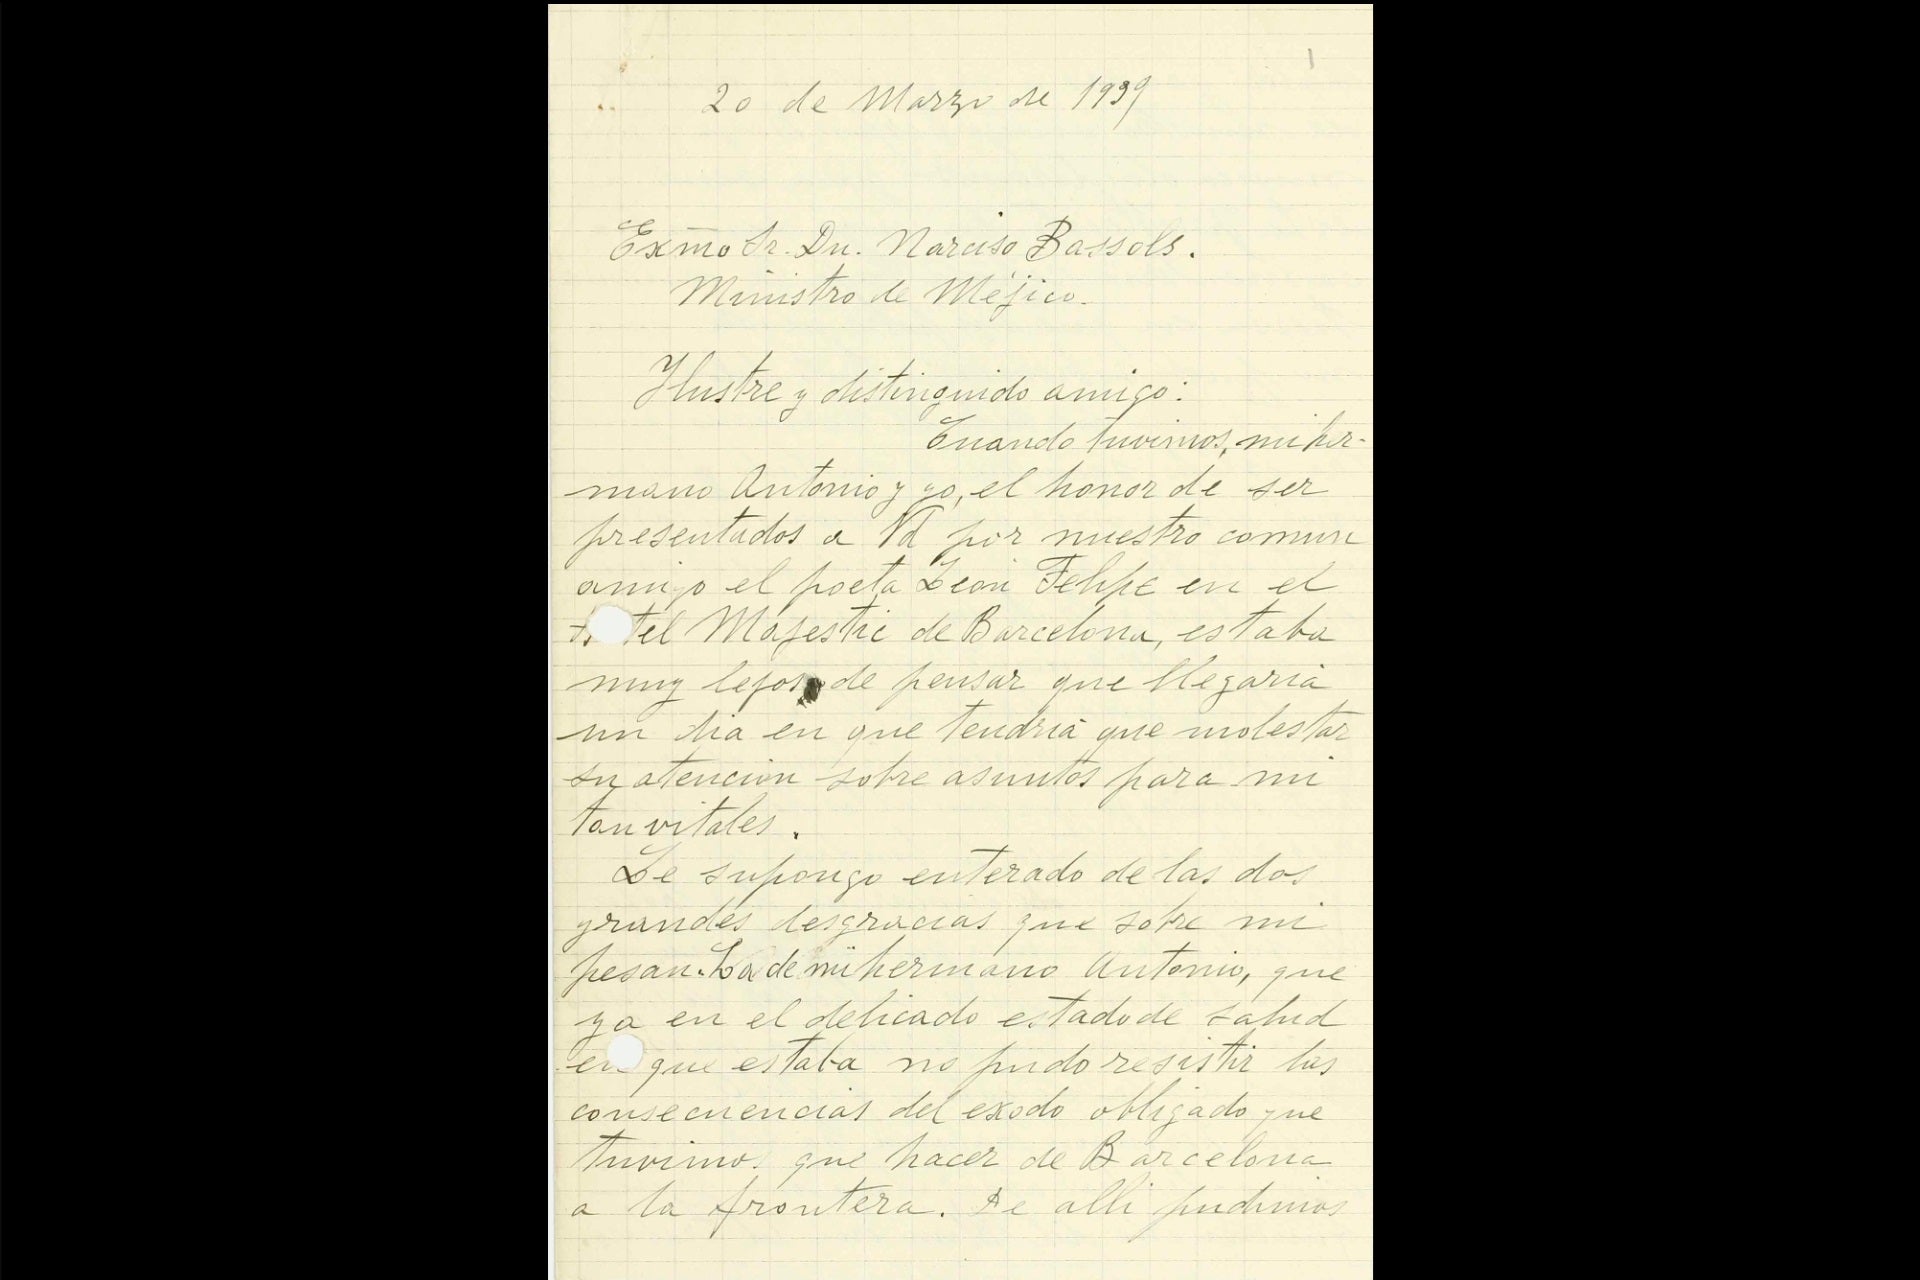 1
20 de Marzo de 1939
Exmo Sr. Dn. Narciso Bassols.
Ministro de Méjico.
Ilustre y distinguido amigo:
Cuando tuvimos, mi her-
mano Antonio y yo, el honor de ser
presentados a Vd por nuestro comun
amigo el poeta León Felipe en el
tel Majestic de Barcelona, estaba
muy lejos de pensar que llegaria
un dia en que tendria que molestar
su atención sobre asuntos para mi
tan vitales.
Le supongo enterado de las dos
grandes desgracias que sobre mi
pesan. La de mi hermano Antonio, que
ya en el delicado estado de salud
en que estaba no pudo resistir las
consecuencias del exodo obligado que
tuvimos que hacer de Barcelona
a la frontera. De alli pudimos